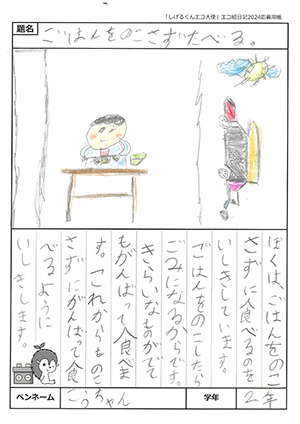 「しげるくんエコ大使」エコ絵日記2024応募用紙
題名
ごはんをのこさずたべる。
ぼくは、ごはんをのこ
さずに食べるのを
いしきしています。
ごはんをのこしたら
ごみになるからです。
きらいなものがでて
もがんばって食べま
す。これからものこ
さずにがんばって食
べるように
いしきします。
ペンネーム
こうちゃん
学年
2年